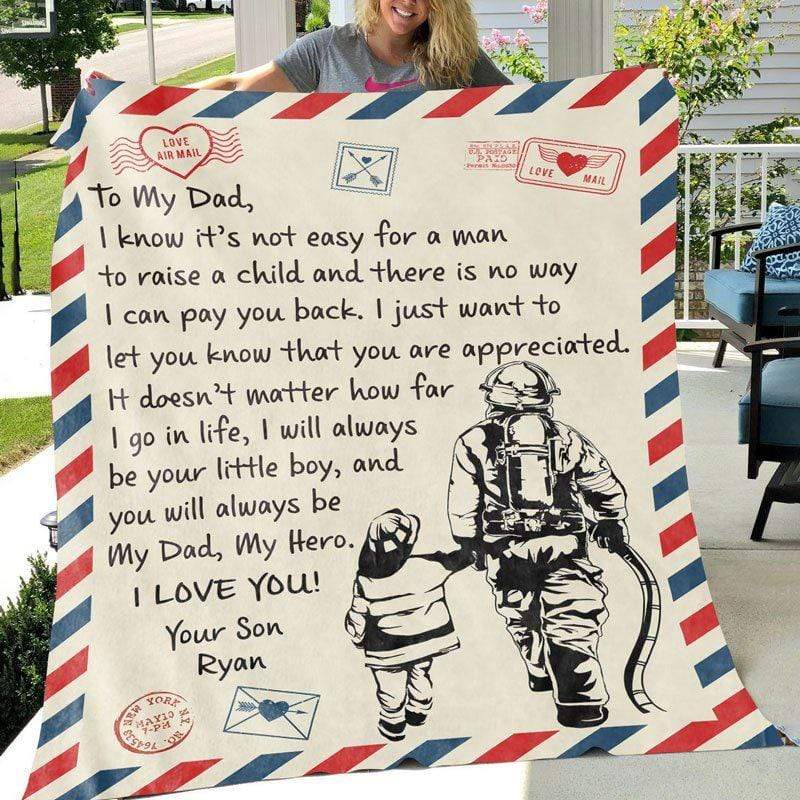 LOVE
AIR MAIL
U.S. POSTAGE
PAID
LOVE MAIL
To My Dad,
I know it's not easy for a man
to raise a child and there is no way
I can pay you back. I just want to
let you know that you are appreciated.
It doesn't matter how far
I go in life, I will always
be your little boy, and
you will always be
My Dad, My Hero.
I LOVE YOU!
Your Son
Ryan
NEW YORK N.Y.
MAY10
7-PM
NO. 764539